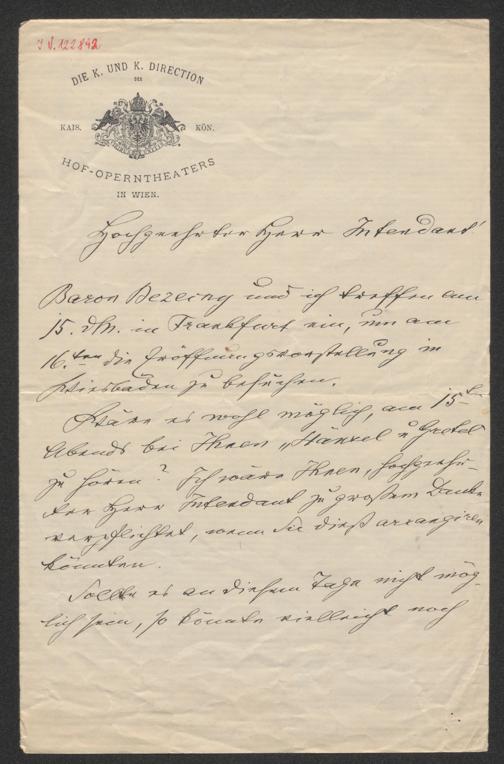 I.N. 122842
DIE K. UND K. DIRECTION
DES
KAIS. KÖN.
HOF-OPERNTHEATERS
IN WIEN.
Hochgeehrter Herr Intendant!
Baron Bezecny und ich treffen am
15. dM. in Frankfurt ein, um am
16.ten die Eröffnungsvorstellung in
Wiesbaden zu besuchen.
Wäre es wohl möglich, am 15ten
Abends bei Ihnen „Hänsel u Gretel"
zu hören? Ich wäre Ihnen, hochgeehr-
ter Herr Intendant zu großem Danke
verpflichtet, wenn Sie dieß arrangiren
könnten.
Sollte es an diesem Tage nicht mög-
lich sein, so könnte vielleicht noch